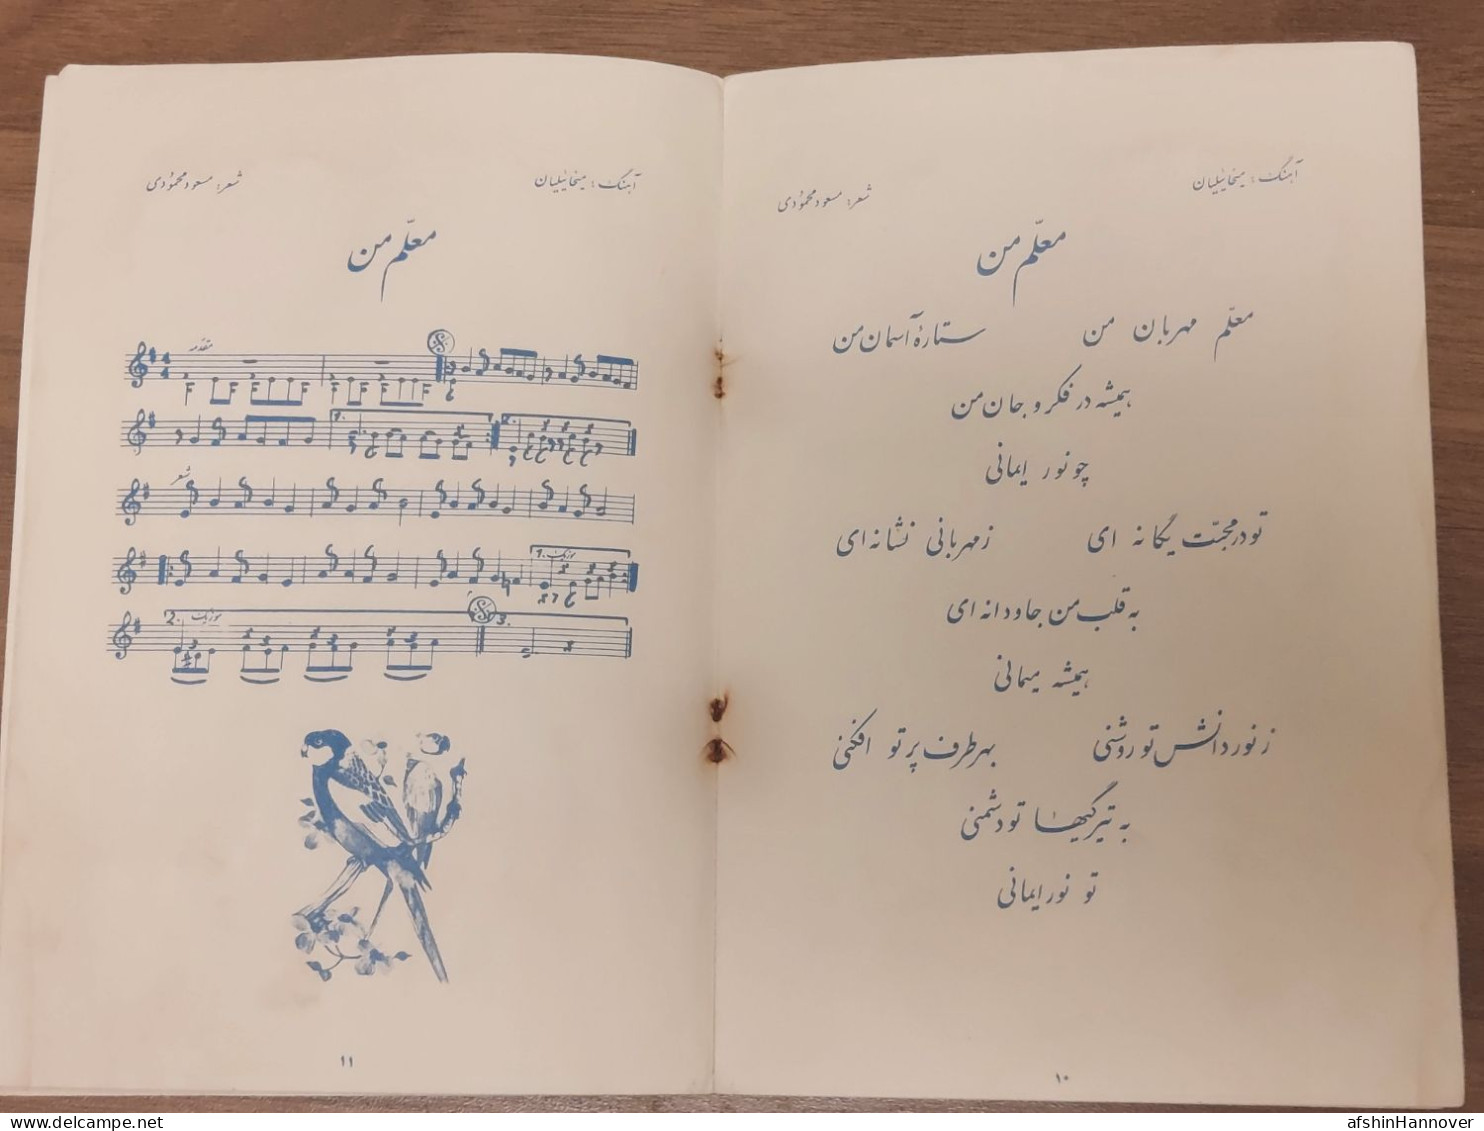 آهنگ: میخائیلیان
شعر: مسعود محمودی
معلّم من
معلّم مهربان من ستارهٔ آسمان من
همیشه در فکر و جان من
چو نور ایمانی
تو در محبّت یگانه ای ز مهربانی نشانه ای
به قلب من جاودانه ای
همیشه میمانی
ز نور دانش تو روشنی بهر طرف پرتو افکنی
به تیرگیها تو دشمنی
تو نور ایمانی
۱۰
آهنگ: میخائیلیان
شعر: مسعود محمودی
معلّم من
مقدمه
1. 2.
شعر
1. موزیک
2. موزیک 3.
۱۱
afshinHannover